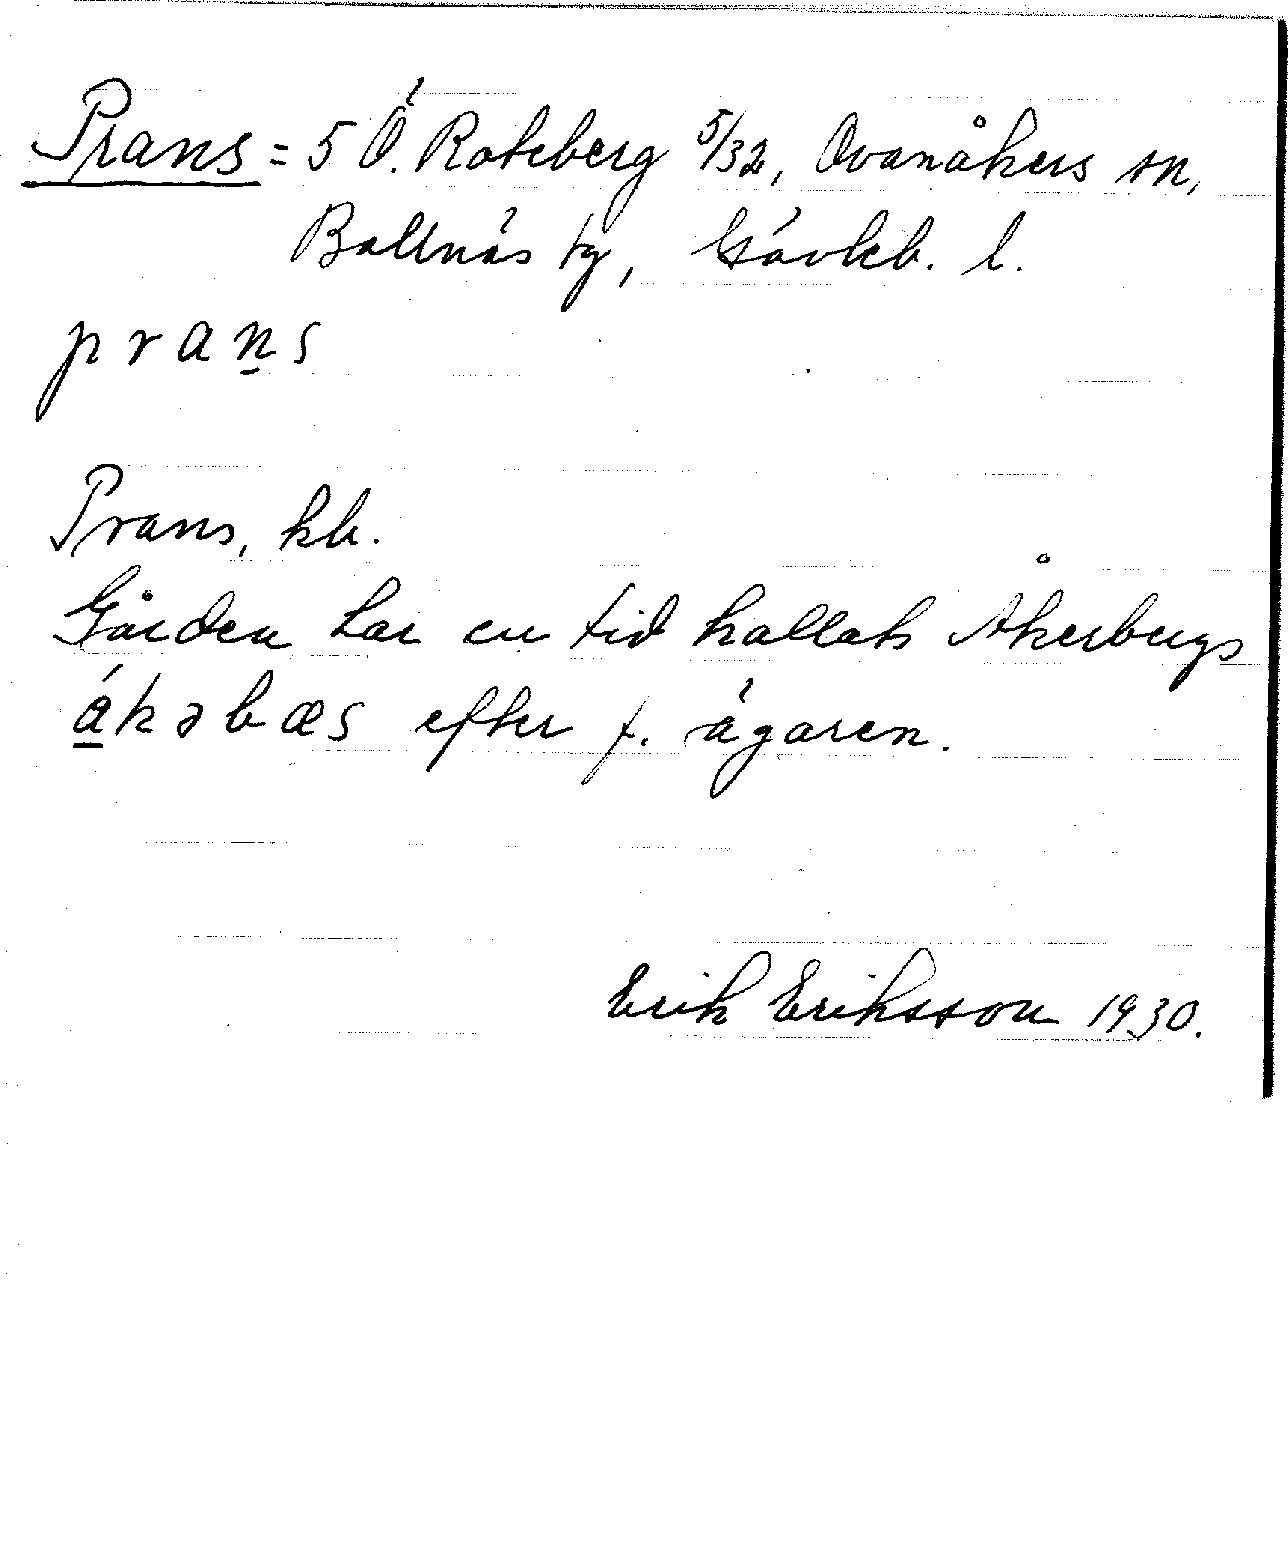 Prans = 5 Ö. Roteberg 5/32, Ovanåkers sn,
Bollnäs tg, Gävleb. l.
prans
Prans, kb.
Gården har en tid kallats Åkerbergs
ákəbæs efter f. ägaren.
Erik Eriksson 1930.